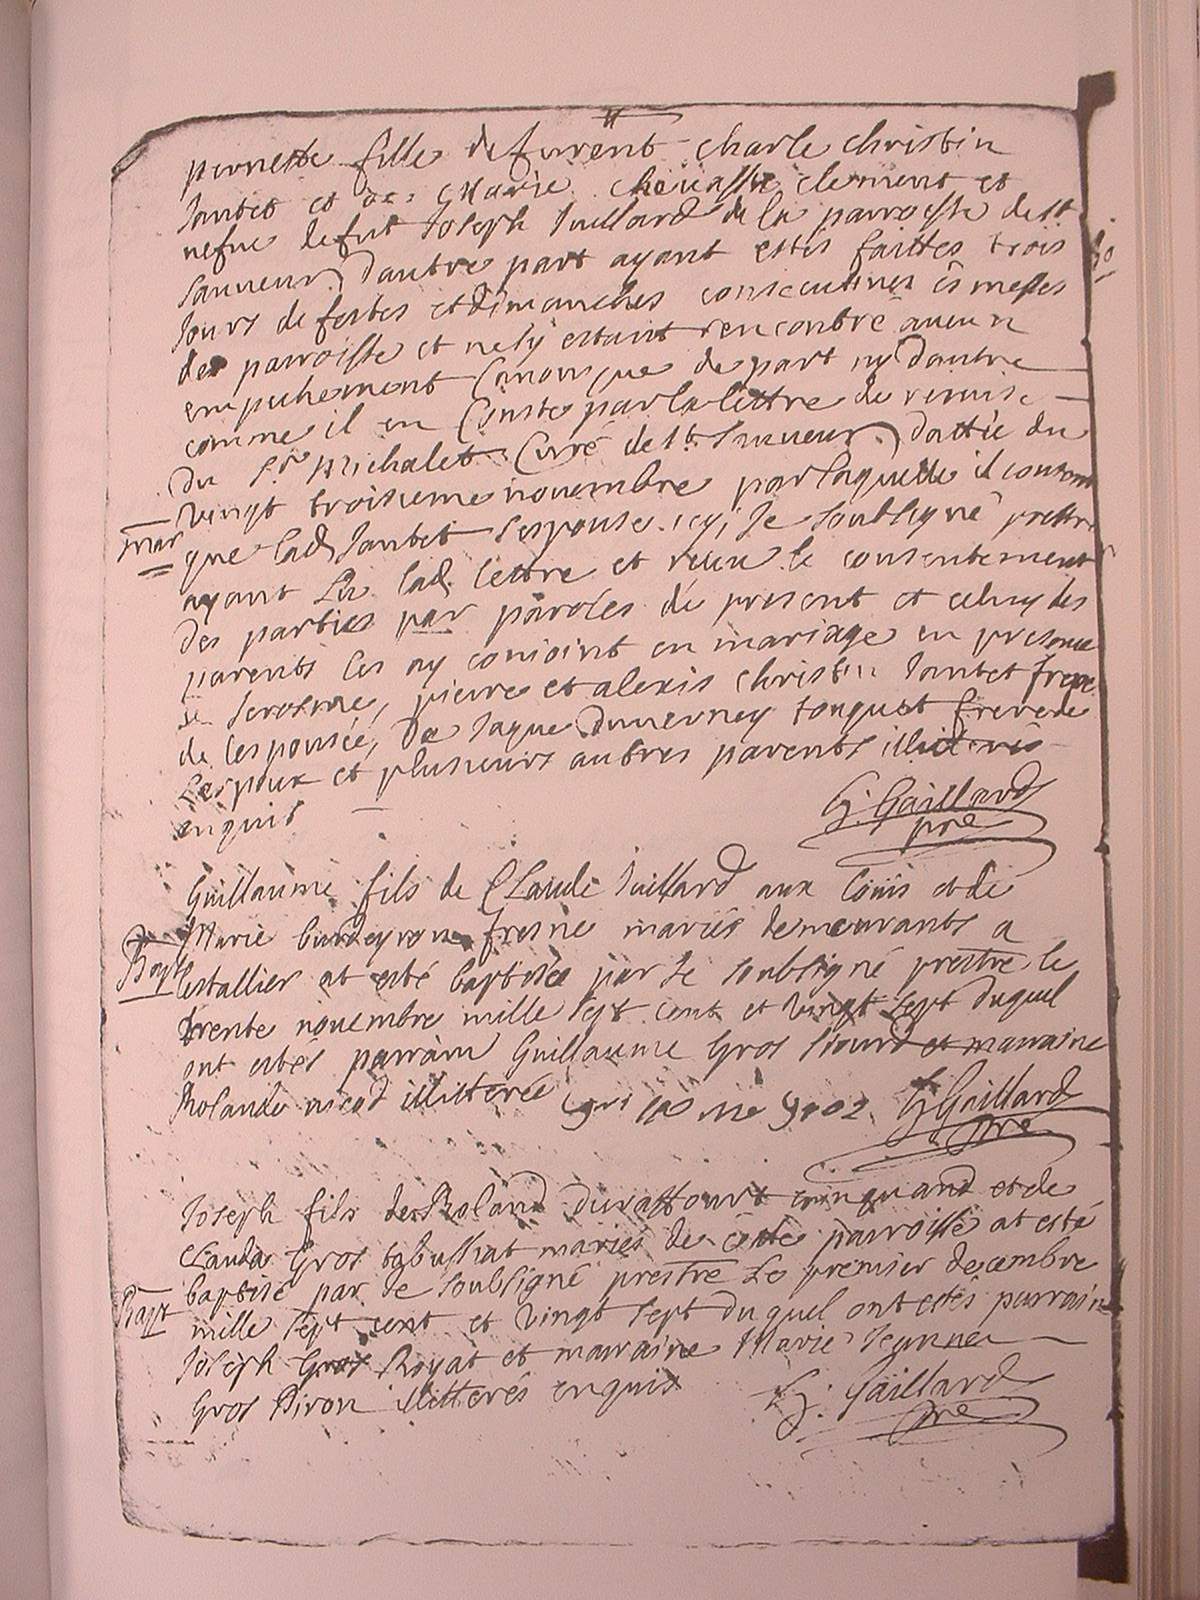 pernette fille de furent charle christin
Jantet et de Marie clement et
nefue defut Joseph Juillard de la parroisse de st
Sauueur dautre part ayant estés faittes trois
Jours de festes et dimanches consecutiues és messes
de parroisse et ne sy estant rencontré aucun
empechement Canonique de part ny dautre
comme il en Conste par la lettre de remise
Du Sr Michalet Curé de st Sauueur dattée du
vingt troisieme novembre par laquelle il consent
Mar
que lad Jantet sespouse icy, Je soubsigné prestre
ayant Lu lad lettre et receu le consentement
Des parties par paroles de present et celuy des
parents les ay conioint en mariage en presence
de Jerosme, pierre et alexis christin Jantet frere
de lespousée, De Jaque Duuerney tonquet frere de
Lespoux et plusieurs autres parents illiterés
enquis
G. Gaillard
pre
Guillaume fils de Claude Juillard aux Coüis et de
Marie fresne mariés demeurants a
Bapt
lestallier at esté baptisée par Je soubsigné prestre le
trente novembre mille sept cent et vingt sept duquel
ont estés parrain Guillaume Gros et marraine
Rolande nicod illitteré
G Gaillard
pre
Joseph fils de Roland duraffourt et de
Clauda Gros tabussiat mariés de cette parroisse at esté
baptisé par Je soubsigné prestre Le premier decembre
Bapt
mille sept cent et vingt sept duquel ont estés parrain
Joseph Gros Royat et marraine Marie Jeanne
Gros Piron illitterés enquis
G. Gaillard
pre